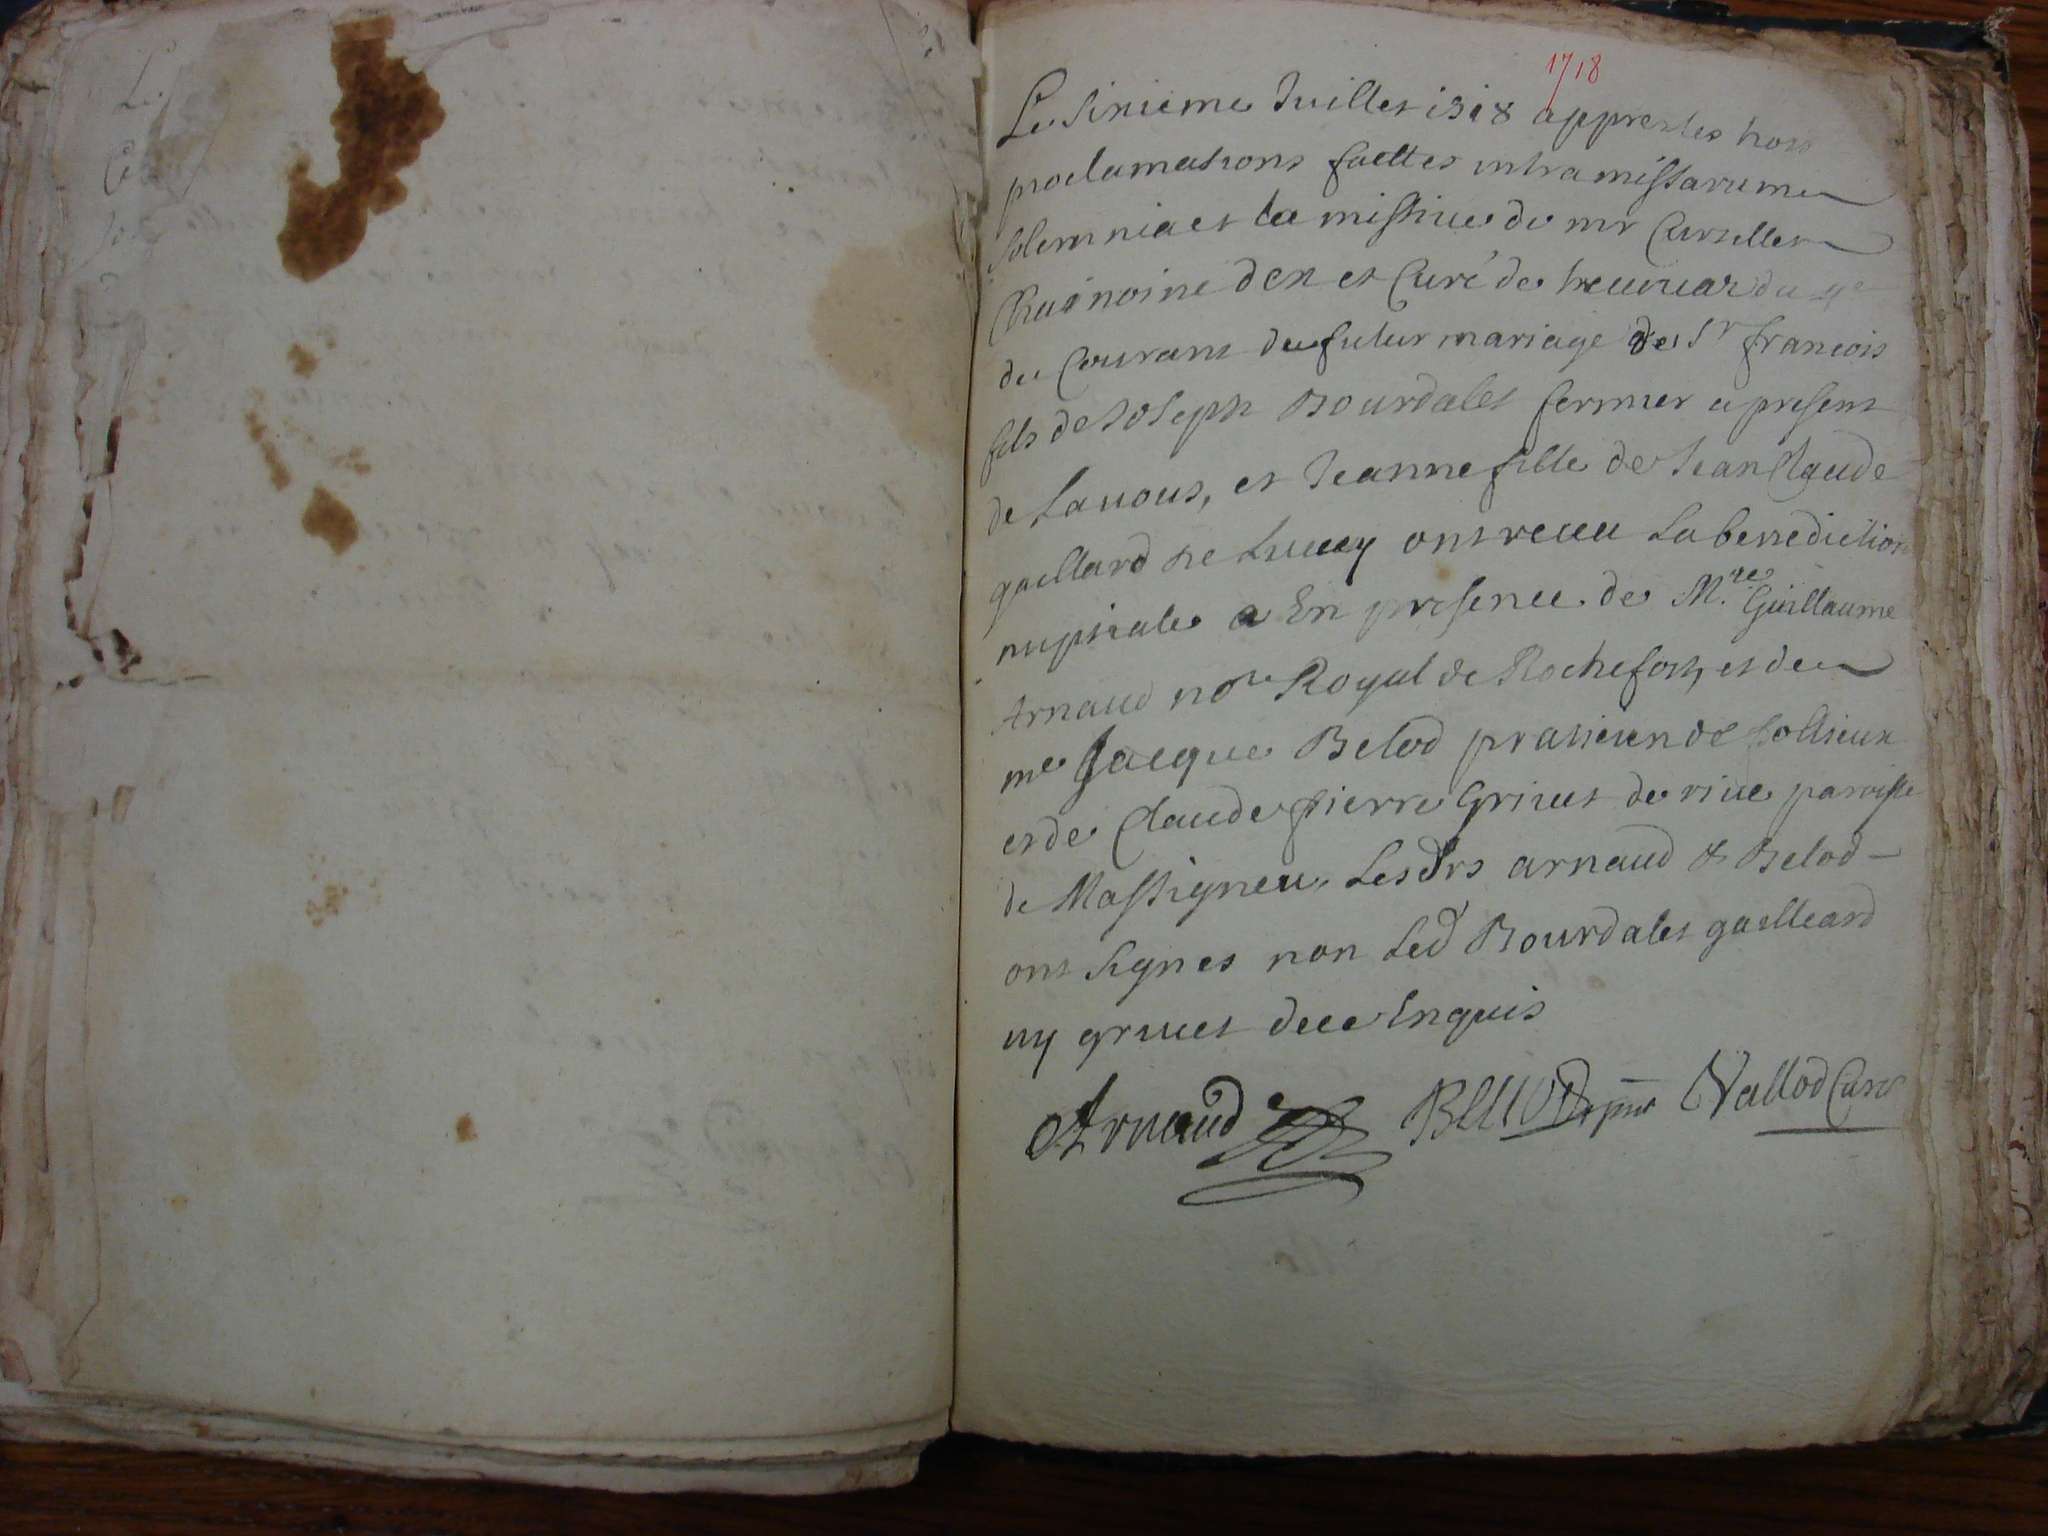 1718
Le Sixieme Juillet 1718 appres les trois
proclamations faittes intra missarum
solemnia et la missive de mr Curtillet
Chanoine den et Curé de du 4e
du Courant du futur mariage de Sr francois
fils de Joseph Bourdalet fermier a present
de Lavous, et Jeanne fille de Jean Claude
gaillard de Lucey ont receu La benediction
nuptiale a En presence de M.re Guillaume
Arnaud nore Royal de Rochefort, et de
me Jacque Belod praticien de
et de Claude pierre Grivet de rive paroisse
de Massigneu, Lesdrs arnaud & Belod
ont signes non Led Bourdalet gailleard
ny grivet de ce Enquis
Arnaud Vallod Curé